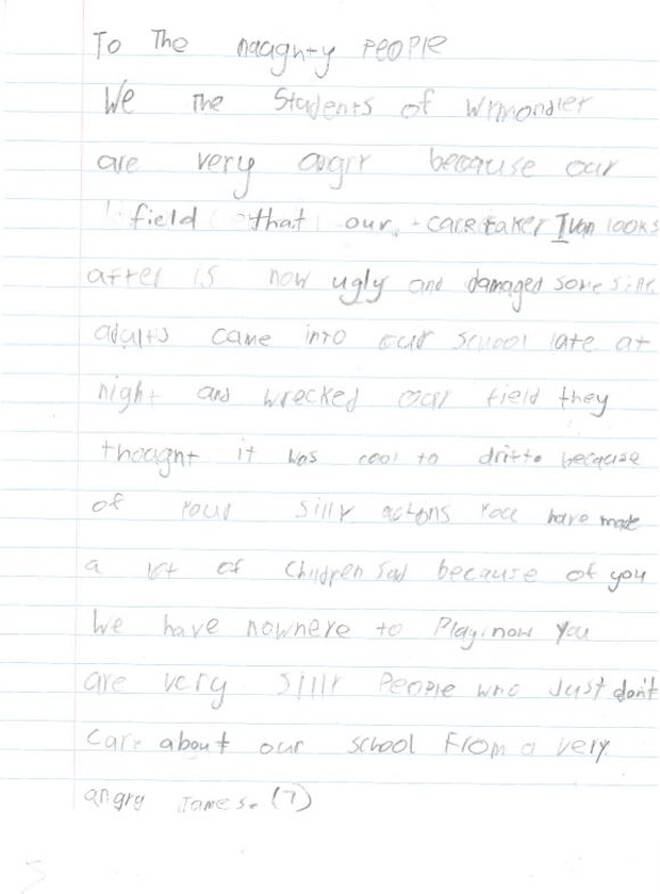 To The naughty PeoPle
We The Students of Wrmondley
are very angry because our
field that our caretaker Ivan looks
after is now ugly and damaged some silly
adults came into our school late at
night and wrecked our field they
thought it was cool to drift. because
of your silly actions you have made
a lot of Children Sad because of you
We have nowhere to Play. now you
are very silly People who Just don't
care about our school From a very
angry James. (7)